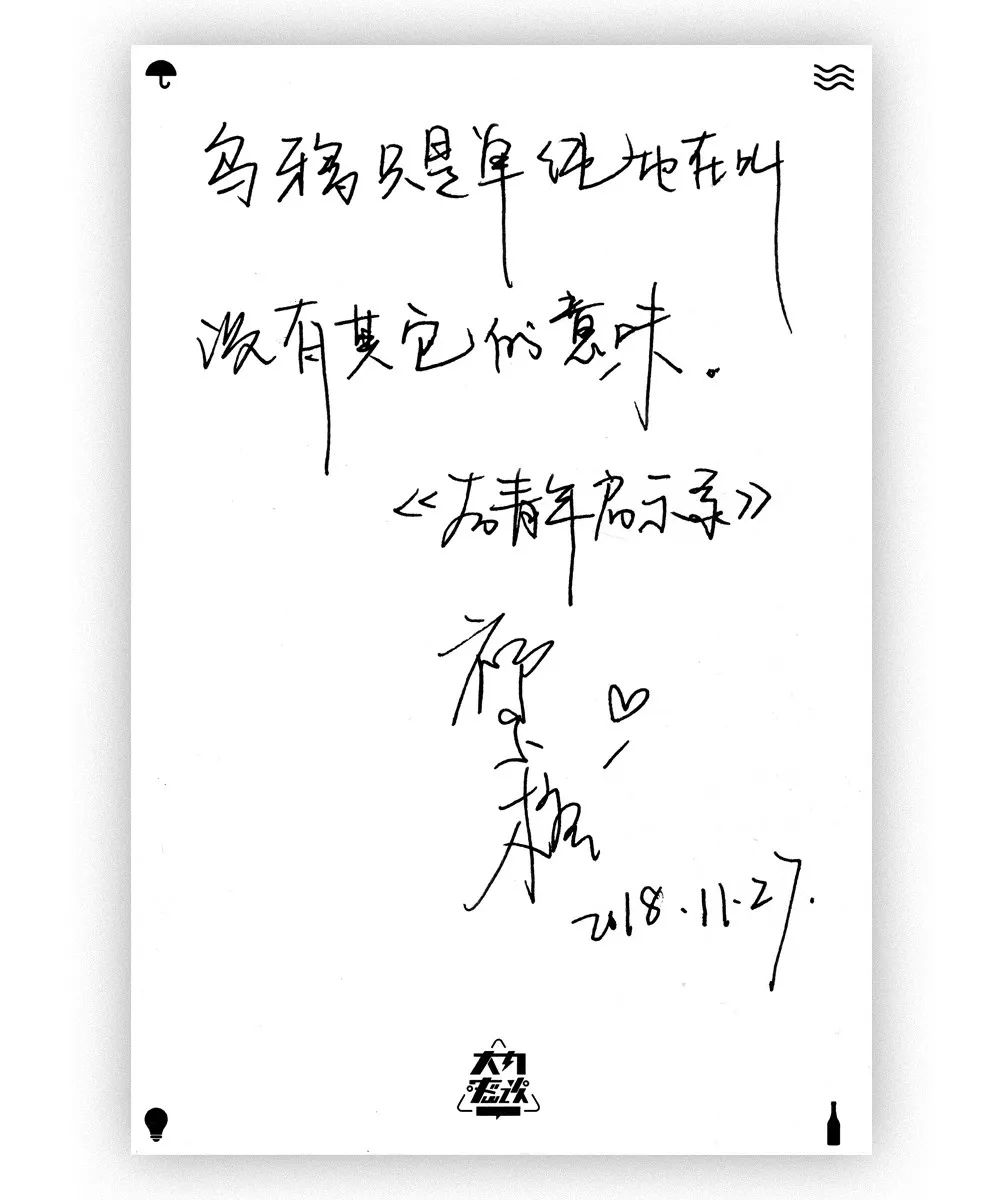 乌鸦只是单纯地在叫
没有其它的意味。
《青年启示录》
2018.11.27.
大内
密谈